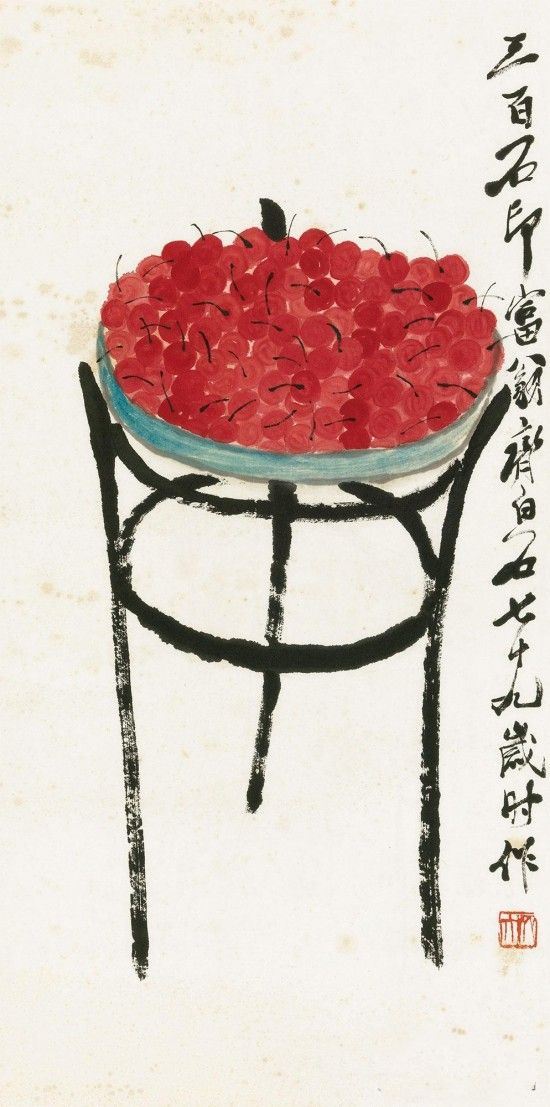 三百石印富翁齊白石七十九歲时作
木人